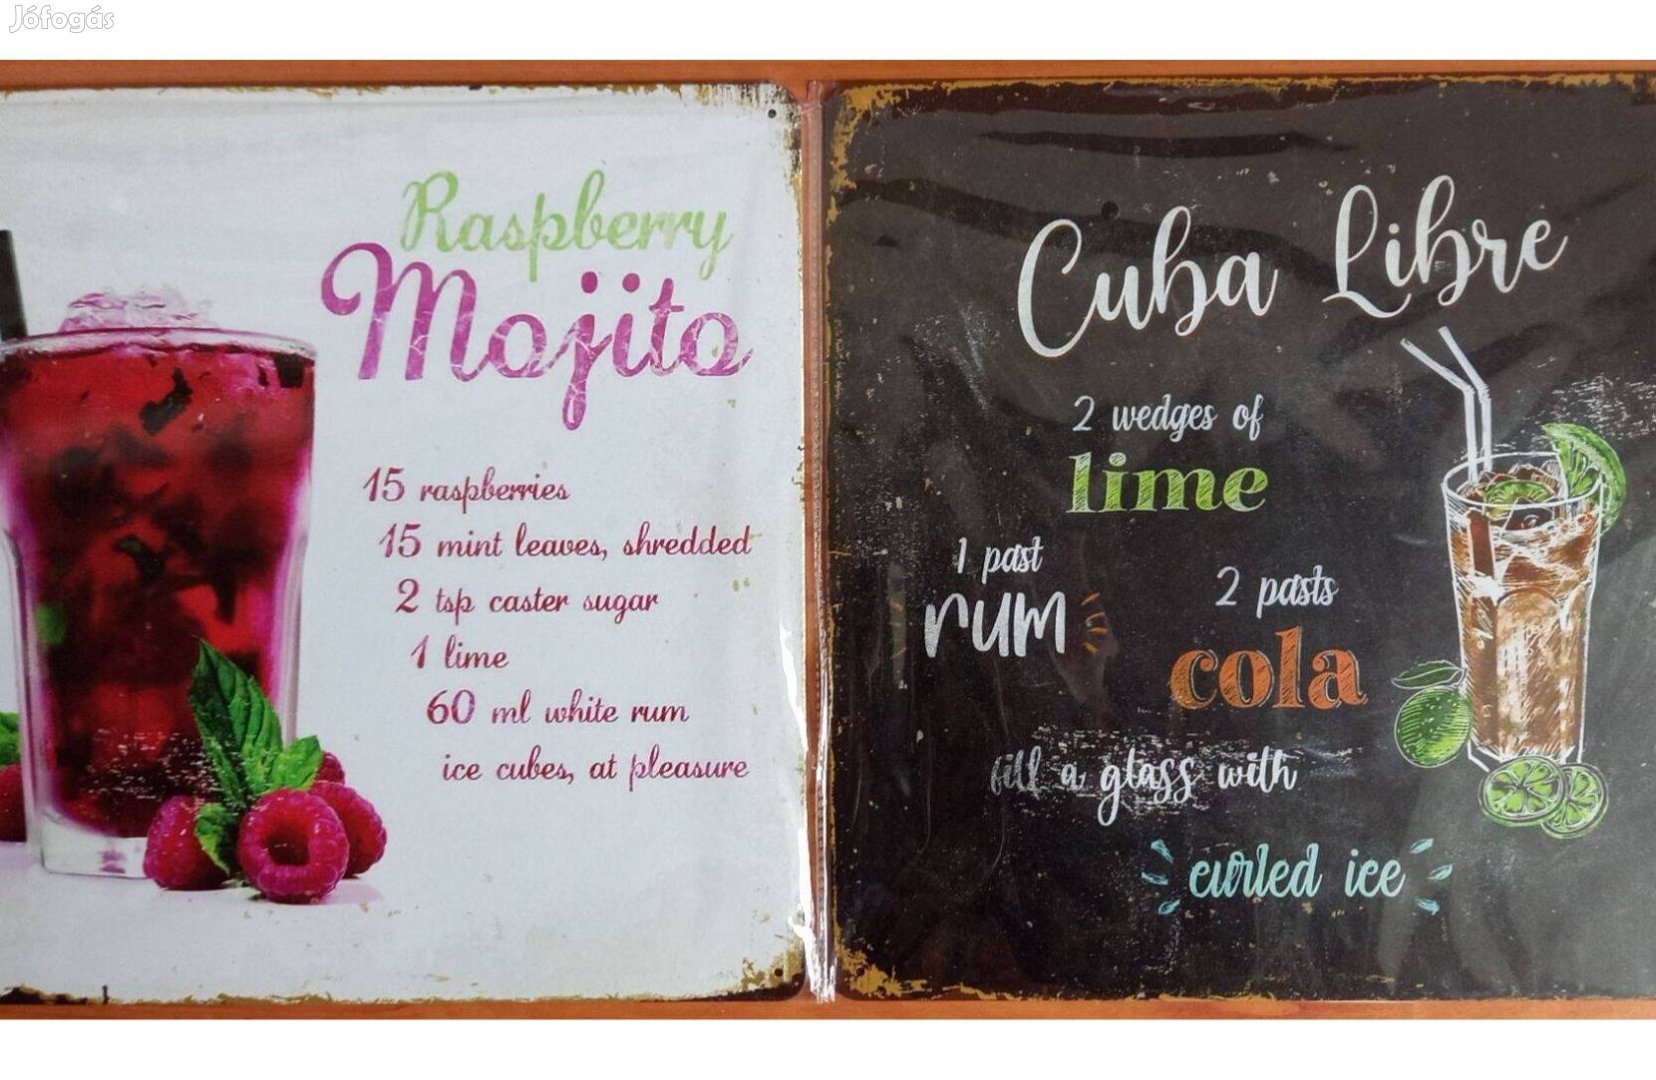 Jófogás
Raspberry
Mojito
15 raspberries
15 mint leaves, shredded
2 tsp caster sugar
1 lime
60 ml white rum
ice cubes, at pleasure
Cuba Libre
2 wedges of
lime
1 past
rum
2 pasts
cola
fill a glass with
curled ice